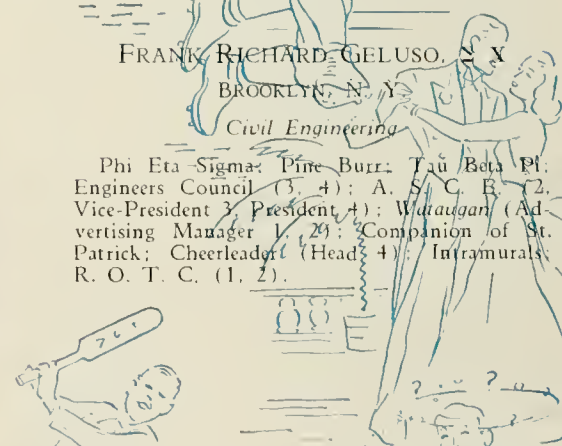 FRANK RICHARD GELUSO, Σ X
BROOKLYN, N. Y.
Civil Engineering
Phi Eta Sigma; Pine Burr; Tau Beta Pi;
Engineers Council (3, 4); A. S. C. E. (2,
Vice-President 3, President 4); Wataugan (Ad-
vertising Manager 1, 2); Companion of St.
Patrick; Cheerleader (Head 4); Intramurals;
R. O. T. C. (1, 2).
? . . ?